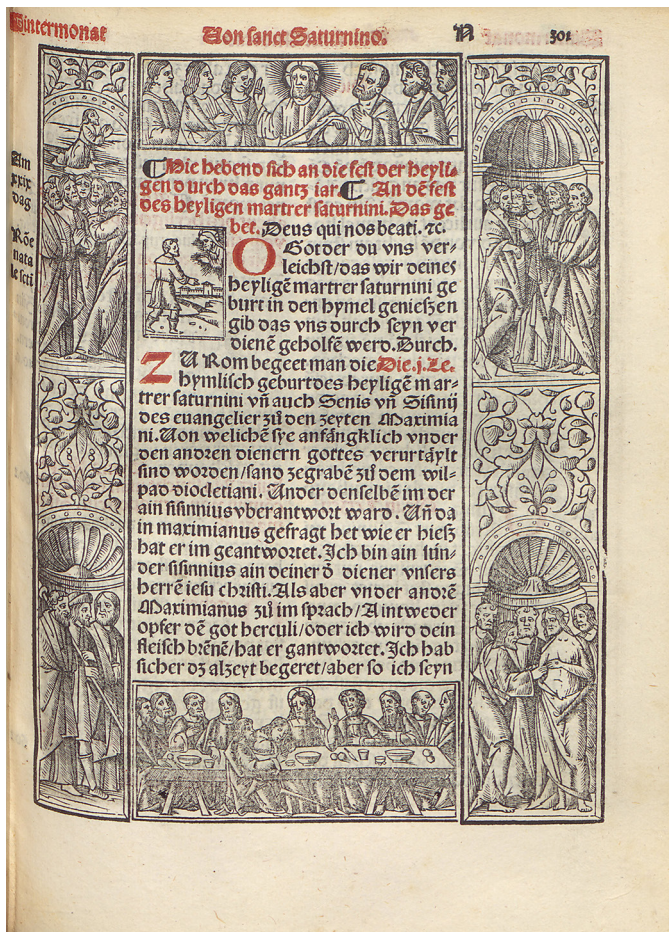 Wintermonat
Von sanct Saturnino.
N
301
Am
xxix
dag
Rōe
nata
le scti
Hie hebend sich an die fest der heyli-
gen durch das gantz iar. An dē fest
des heyligen martrer saturnini. Das ge
bet. Deus qui nos beati. ⁊c.
O Got der du vns ver-
leichst/das wir deines
heyligē martrer saturnini ge
burt in den hymel genieszen
gib das vns durch seyn ver
dienē geholfē werd. Durch.
ZU Rom begeet man die Die .j. Le.
hymlisch geburt des heyligē mar-
trer saturnini vn̄ auch Senis vn̄ Sisinij
des euangelier zů den zeyten Maximia
ni. Von welichē sye anfängklich vnder
den andren dienern gottes verurtaylt
sind worden/sand zegrabē zů dem wil-
pad diocletiani. Under denselbē im der
ain sisinnius vberantwort ward. Un̄ da
in maximianus gefragt het wie er hiesz
hat er im geantwortet. Ich bin ain sün-
der sisinnius ain deiner d̄ diener vnsers
herrē iesu christi. Als aber vnder andrē
Maximianus zů im sprach/Aintweder
opfer dē got herculi/oder ich wird dein
fleisch brēnē/hat er gantwortet. Ich hab
sicher dz alzeyt begeret/aber so ich seyn